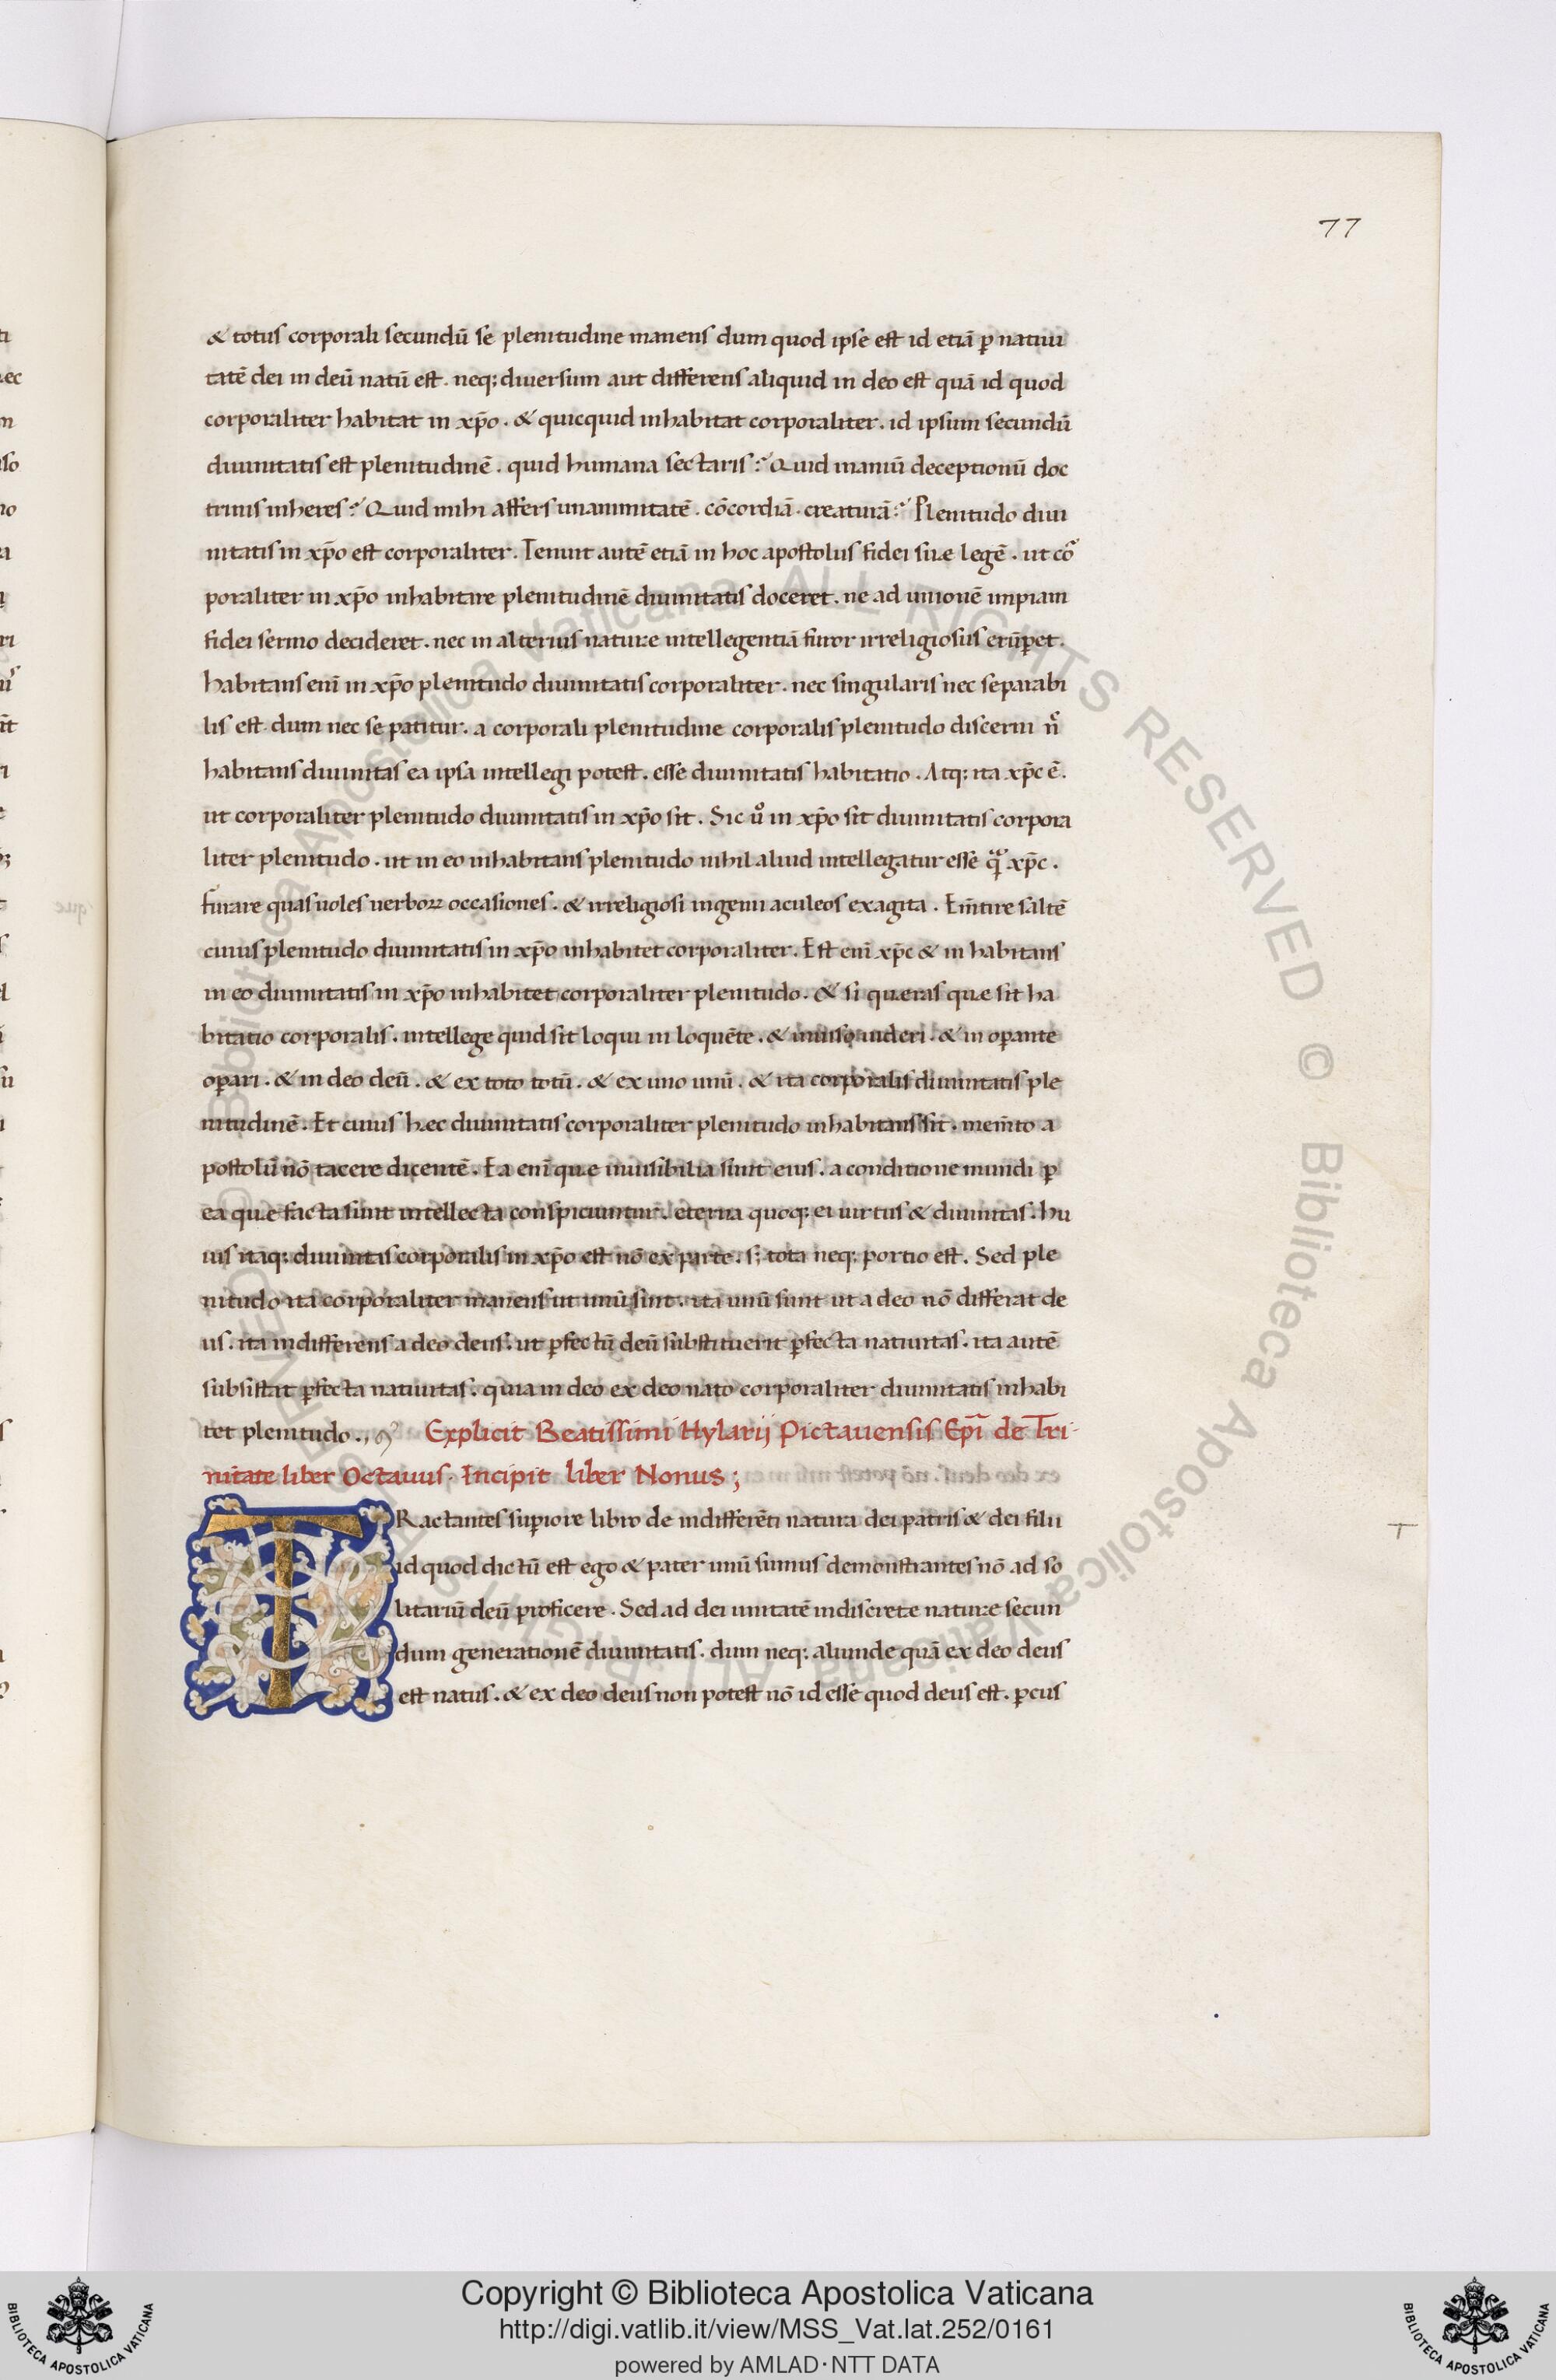 77
& totus corporali secundū se plenitudine manens dum quod ipse est id etiā ꝑ natiui
tatē dei in deū natū est. neq; diuersum aut differens aliquid in deo est quā id quod
corporaliter habitat in xp̄o. & quicquid inhabitat corporaliter. id ipsum secundū
diuinitatis est plenitudinē. quid humana sectaris? Quid inaniū deceptionū doc
trinis inheres? Quid mihi affers unanimitatē. cōcordiā. creaturā? Plenitudo diui
nitatis in xp̄o est corporaliter. Tenuit autē etiā in hoc apostolus fidei suæ legē. ut cor
poraliter in xp̄o inhabitare plenitudinē diuinitatis doceret. ne ad unionē impiam
fidei sermo decideret. nec in alterius naturæ intellegentiā furor irreligiosus erūꝑet.
habitans enī in xp̄o plenitudo diuinitatis corporaliter. nec singularis nec separabi
lis est. dum nec se patitur. a corporali plenitudine corporalis plenitudo discerni nͦ
habitans diuinitas ea ipsa intellegi potest. esse diuinitatis habitatio. Atq; ita xp̄c ē.
ut corporaliter plenitudo diuinitatis in xp̄o sit. Sic uͦ in xp̄o sit diuinitatis corpora
liter plenitudo. ut in eo inhabitans plenitudo nihil aliud intellegatur esse qͣ xp̄c.
furare quas uoles uerboꝝ occasiones. & irreligiosi ingenii aculeos exagita. Em̄tire saltē
cuius plenitudo diuinitatis in xp̄o inhabitet corporaliter. Est enī xp̄c & in habitans
in eo diuinitatis in xp̄o inhabitet corporaliter plenitudo. & si quæras quæ sit ha
bitatio corporalis. intellege quid sit loqui in loquēte. & in uiso uideri. & in oꝑante
oꝑari. & in deo deū. & ex toto totū. & ex uno unū. & ita corporalis diuinitatis ple
nitudinē. Et cuius hæc diuinitatis corporaliter plenitudo inhabitans sit. mem̄to a
postolū nō tacere dicentē. Ea enī quæ inuisibilia sunt eius. a conditione mundi ꝑ
ea quæ facta sunt intellecta conspiciuntur. eterna quoq; ei uirtus & diuinitas. hu
ius itaq; diuinitas corporalis in xp̄o est nō ex parte. s; tota neq; portio est. Sed ple
nitudo ita corporaliter manens ut unū sint. ita unū sunt ut a deo nō differat de
us. ita indifferens a deo deus. ut ꝑfectū deū substituerit ꝑfecta natiuitas. ita autē
subsistat ꝑfecta natiuitas. quia in deo ex deo nato corporaliter diuinitatis inhabi
tet plenitudo. Explicit Beatissimi Hylarij Pictauensis Ep̄i de Tri-
nitate liber Octauus. Incipit liber Nonus;
TRactantes suꝑiore libro de indifferēti natura dei patris & dei filii
id quod dictū est ego & pater unū sumus demonstrantes nō ad so
litariū deū proficere. Sed ad dei unitatē indiscretæ naturæ secun
dum generationē diuinitatis. dum neq; aliunde quā ex deo deus
est natus. & ex deo deus non potest nō id esse quod deus est. ꝑcus
T
© Biblioteca Apostolica Vaticana ALL RIGHTS RESERVED
BIBLIOTECA APOSTOLICA VATICANA
Copyright © Biblioteca Apostolica Vaticana
http://digi.vatlib.it/view/MSS_Vat.lat.252/0161
powered by AMLAD·NTT DATA
BIBLIOTECA APOSTOLICA VATICANA